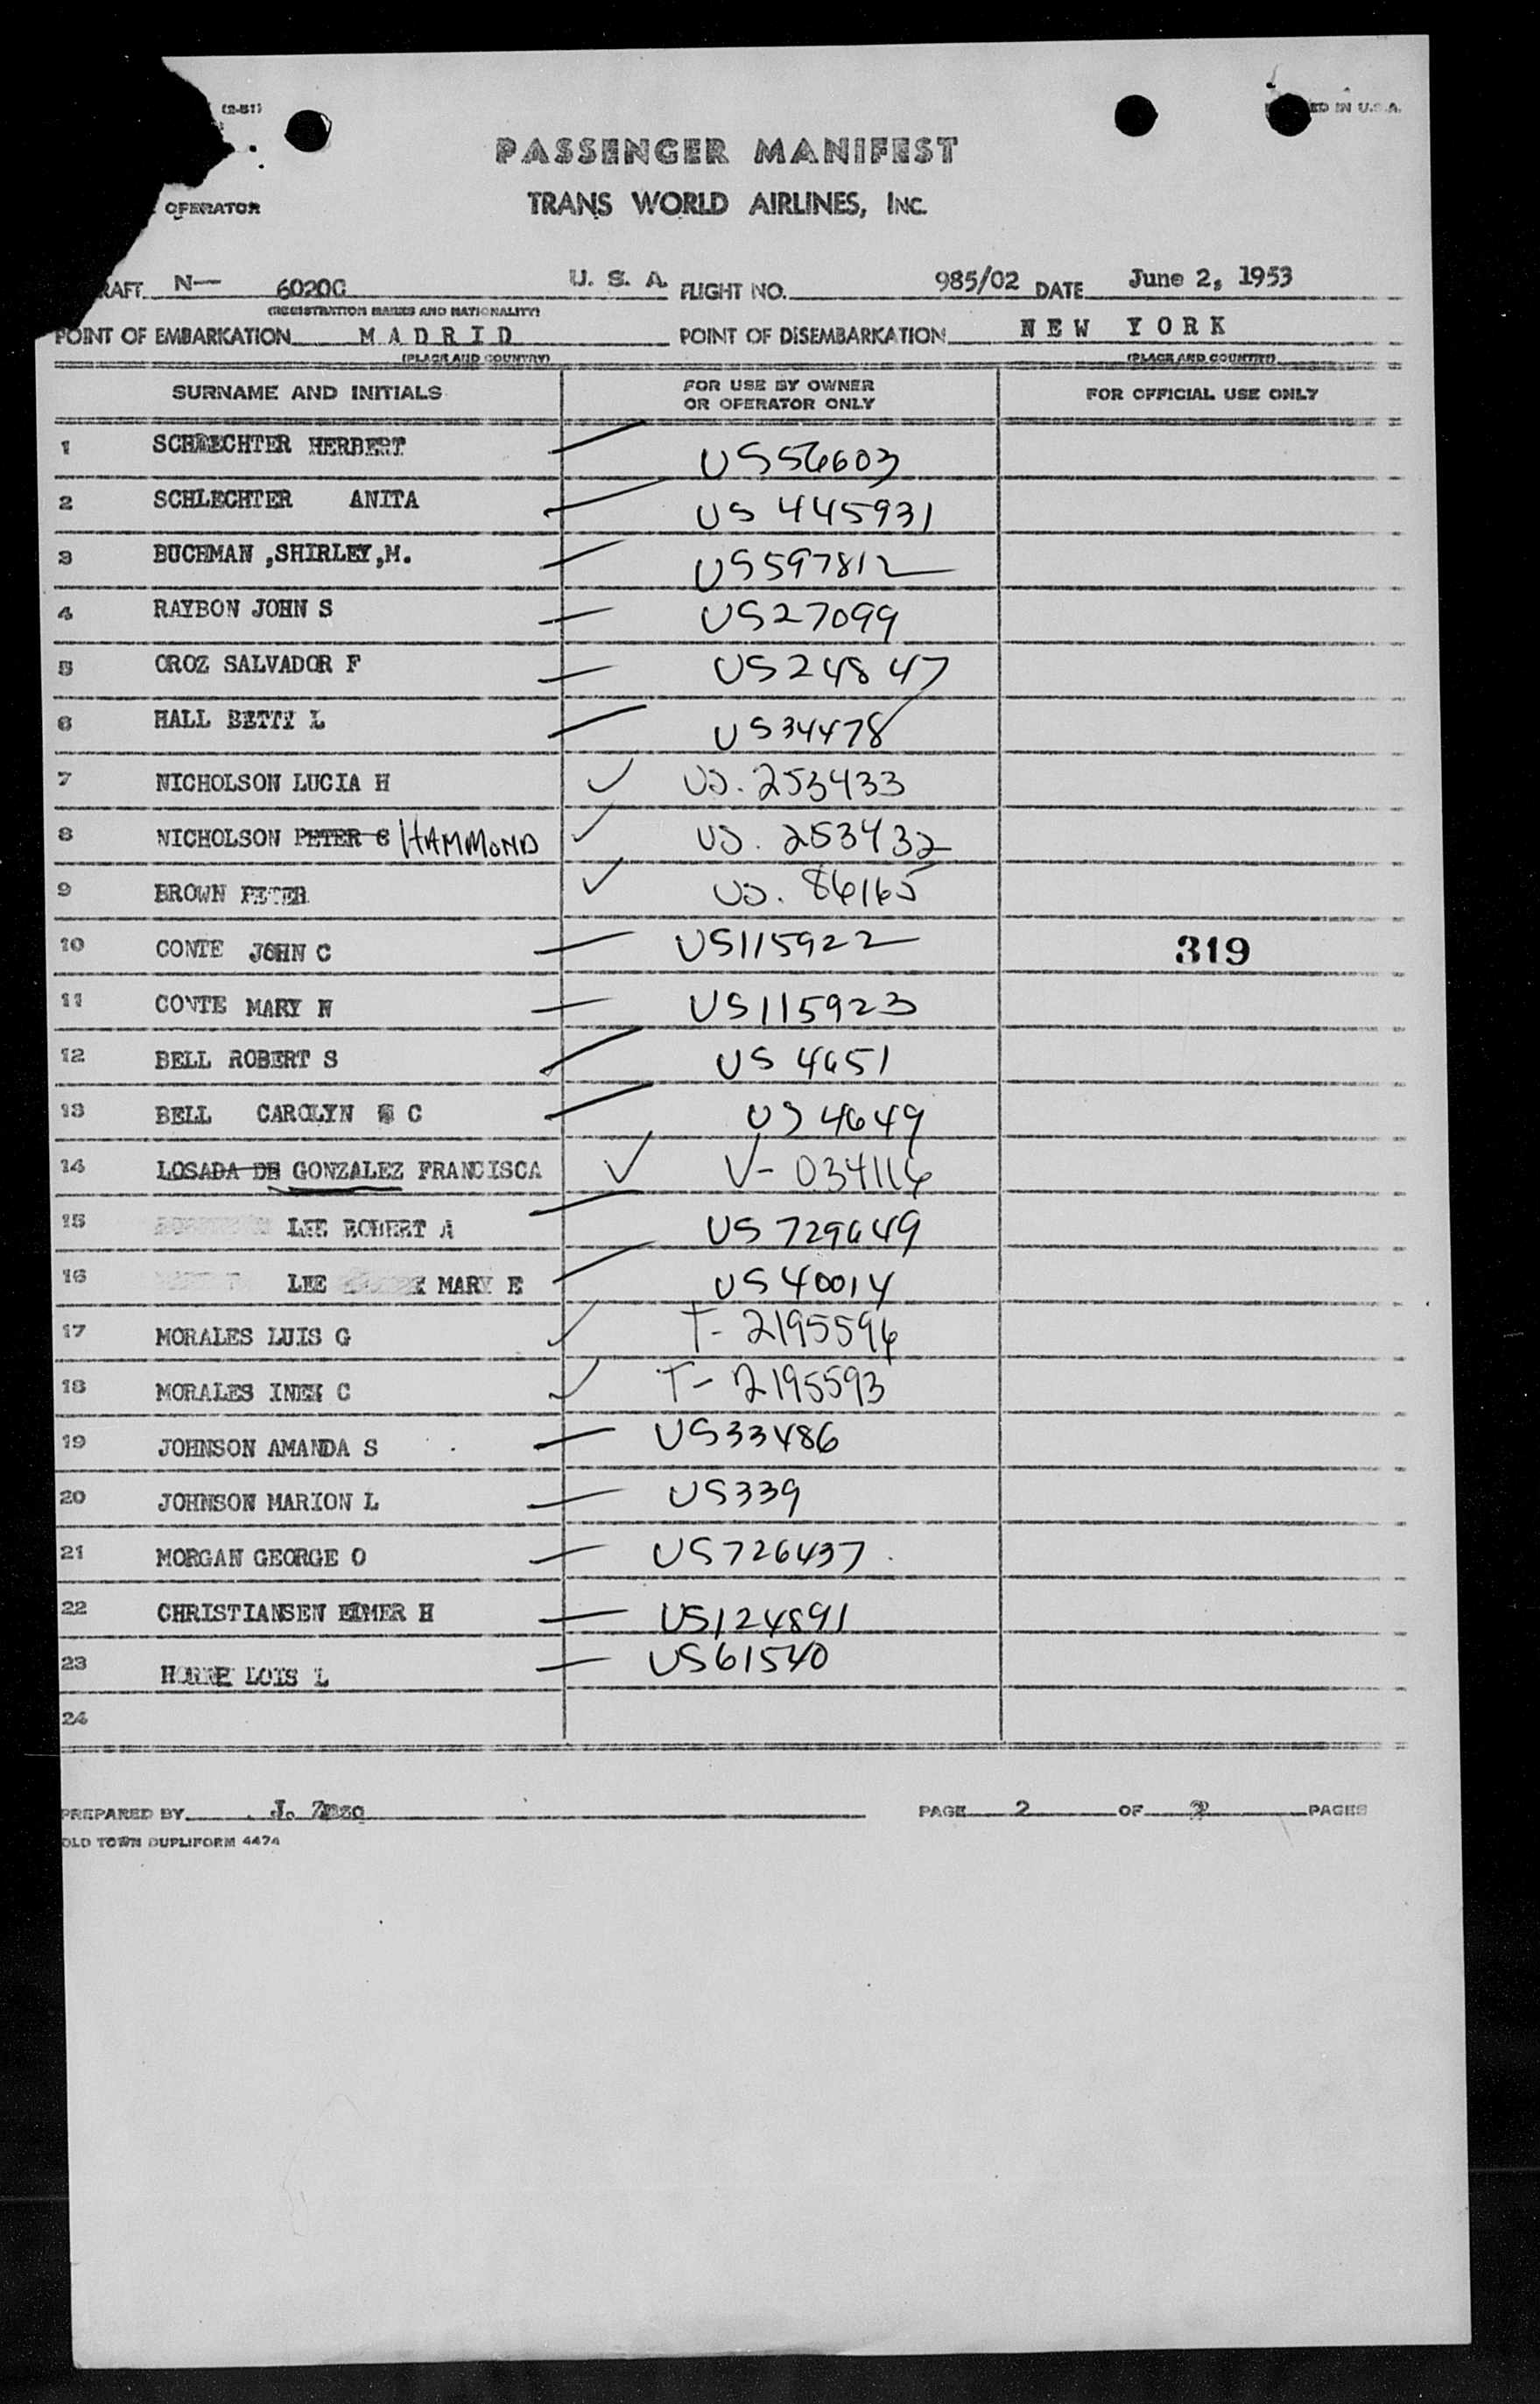 (2-51)
ED IN U.S.A.
PASSENGER MANIFEST
OPERATOR
TRANS WORLD AIRLINES, INC.
RAFT N— 6020C U. S. A. FLIGHT NO. 985/02 DATE June 2, 1953
(REGISTRATION MARKS AND NATIONALITY)
POINT OF EMBARKATION MADRID POINT OF DISEMBARKATION NEW YORK
(PLACE AND COUNTRY) (PLACE AND COUNTRY)
SURNAME AND INITIALS FOR USE BY OWNER OR OPERATOR ONLY FOR OFFICIAL USE ONLY
1 SCHLECHTER HERBERT US56603
2 SCHLECHTER ANITA US 445931
3 BUCHMAN ,SHIRLEY,M. US597812
4 RAYBON JOHN S US27099
5 OROZ SALVADOR F US24847
6 HALL BETTY L US34478
7 NICHOLSON LUCIA H US. 253433
8 NICHOLSON PETER G HAMMOND US. 253432
9 BROWN PETER US. 86165
10 CONTE JOHN C US115922 319
11 CONTE MARY N US115923
12 BELL ROBERT S US 4651
13 BELL CAROLYN C US 4649
14 LOSADA DE GONZALEZ FRANCISCA V- 034116
15 LEE ROBERT A US 729649
16 LEE MARY E US40014
17 MORALES LUIS G T- 2195594
18 MORALES INEZ C T- 2195593
19 JOHNSON AMANDA S US33486
20 JOHNSON MARION L US339
21 MORGAN GEORGE O US726437
22 CHRISTIANSEN ELMER H US124891
23 HORNE LOIS L US61540
24
PREPARED BY J. PAGE 2 OF 2 PAGES
OLD TOWN DUPLIFORM 4474